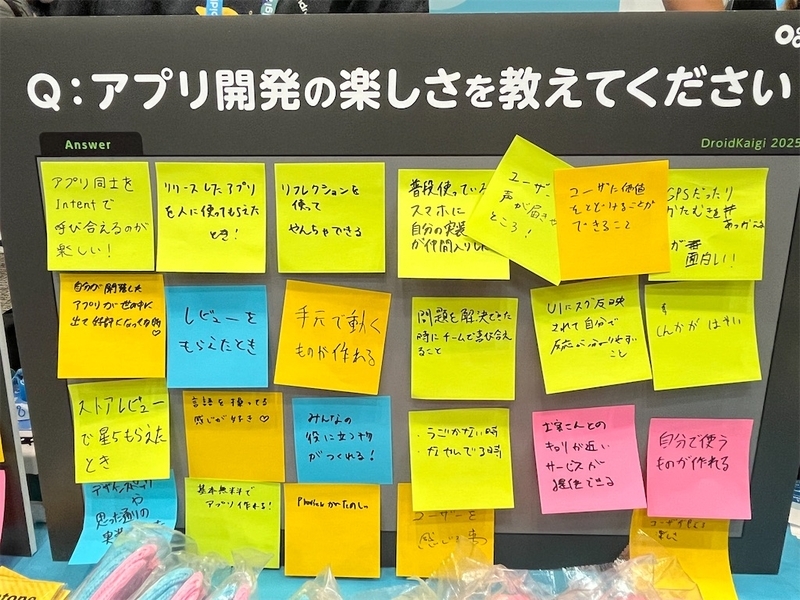 Q：アプリ開発の楽しさを教えてください
Answer
DroidKaigi 2025
アプリ同士を
Intentで
呼び合えるのが
楽しい！
リリースしたアプリ
を人に使ってもらえた
とき！
リフレクションを
使って
やんちゃできる
普段使っている
スマホに
自分の実装
が仲間入りした
ユーザ
声が届きや
ところ！
ユーザに価値
をとどけることが
できること
GPSだったり
かたむきを
が
面白い！
自分が開発した
アプリが世の中に
出て
レビューを
もらえたとき
手元で動く
ものが作れる
問題を解決できた
時にチームで喜び合え
ること
UIにスグ反映
されて自分で
こと
しんかが はやい
ストアレビュー
で星5もらえた
とき
言語を操ってる
感じが好き♡
みんなの
役に立つ物
がつくれる！
・うごかない時
・なやんでる時
お客さんとの
キョリが近い
サービスが
提供できる
自分で使う
ものが作れる
や
思った通りの
基本無料で
アプリ作れる！
がたのしい
ユーザーを
感じる事